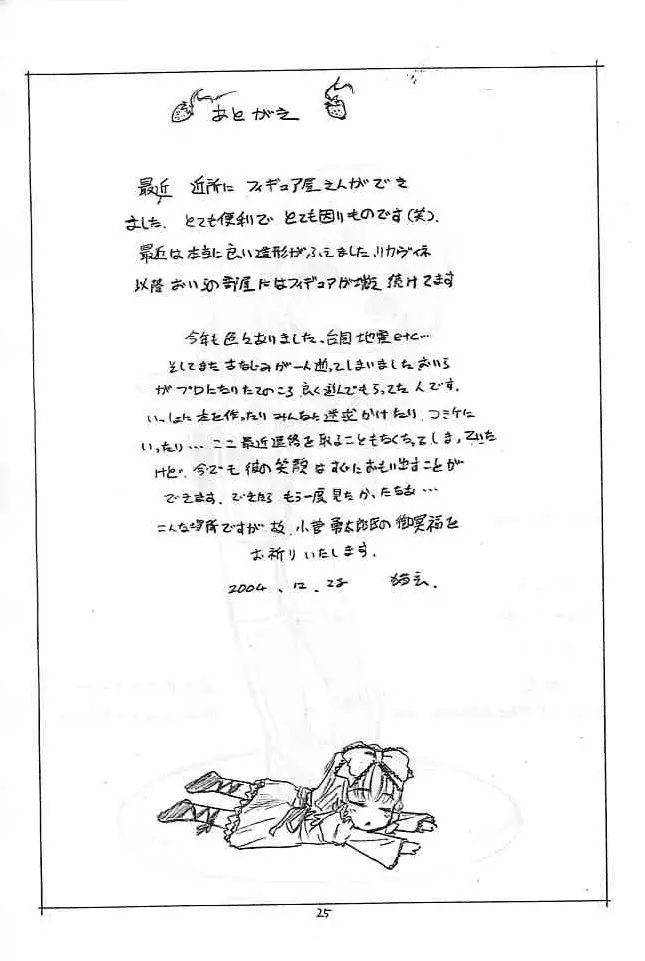 あとがき
最近 近所に フィギュア屋さんができ
ました. とても便利で とても困りものです(笑).
最近は本当に良い造形がふえました. リカヴィネ
以降 おいらの部屋にはフィギュアが増え続けてます
今年も色々ありました、台風 地震etc…
そしてまたおさなじみが一人逝ってしまいました おいら
がプロになりたてのころ 良く遊んでもらってた人です.
いっしょに本を作ったり みんなに迷惑かけたり コミケに
いったり… ここ最近連絡を取ることもなくなってしまっていた
けど. 今でも彼の笑顔はすぐにおもい出すことが
できます. できたら もう一度見たかったなぁ…
こんな場所ですが 故. 小菅 勇太郎氏の御冥福を
お祈りいたします.
2004. 12. 28
25